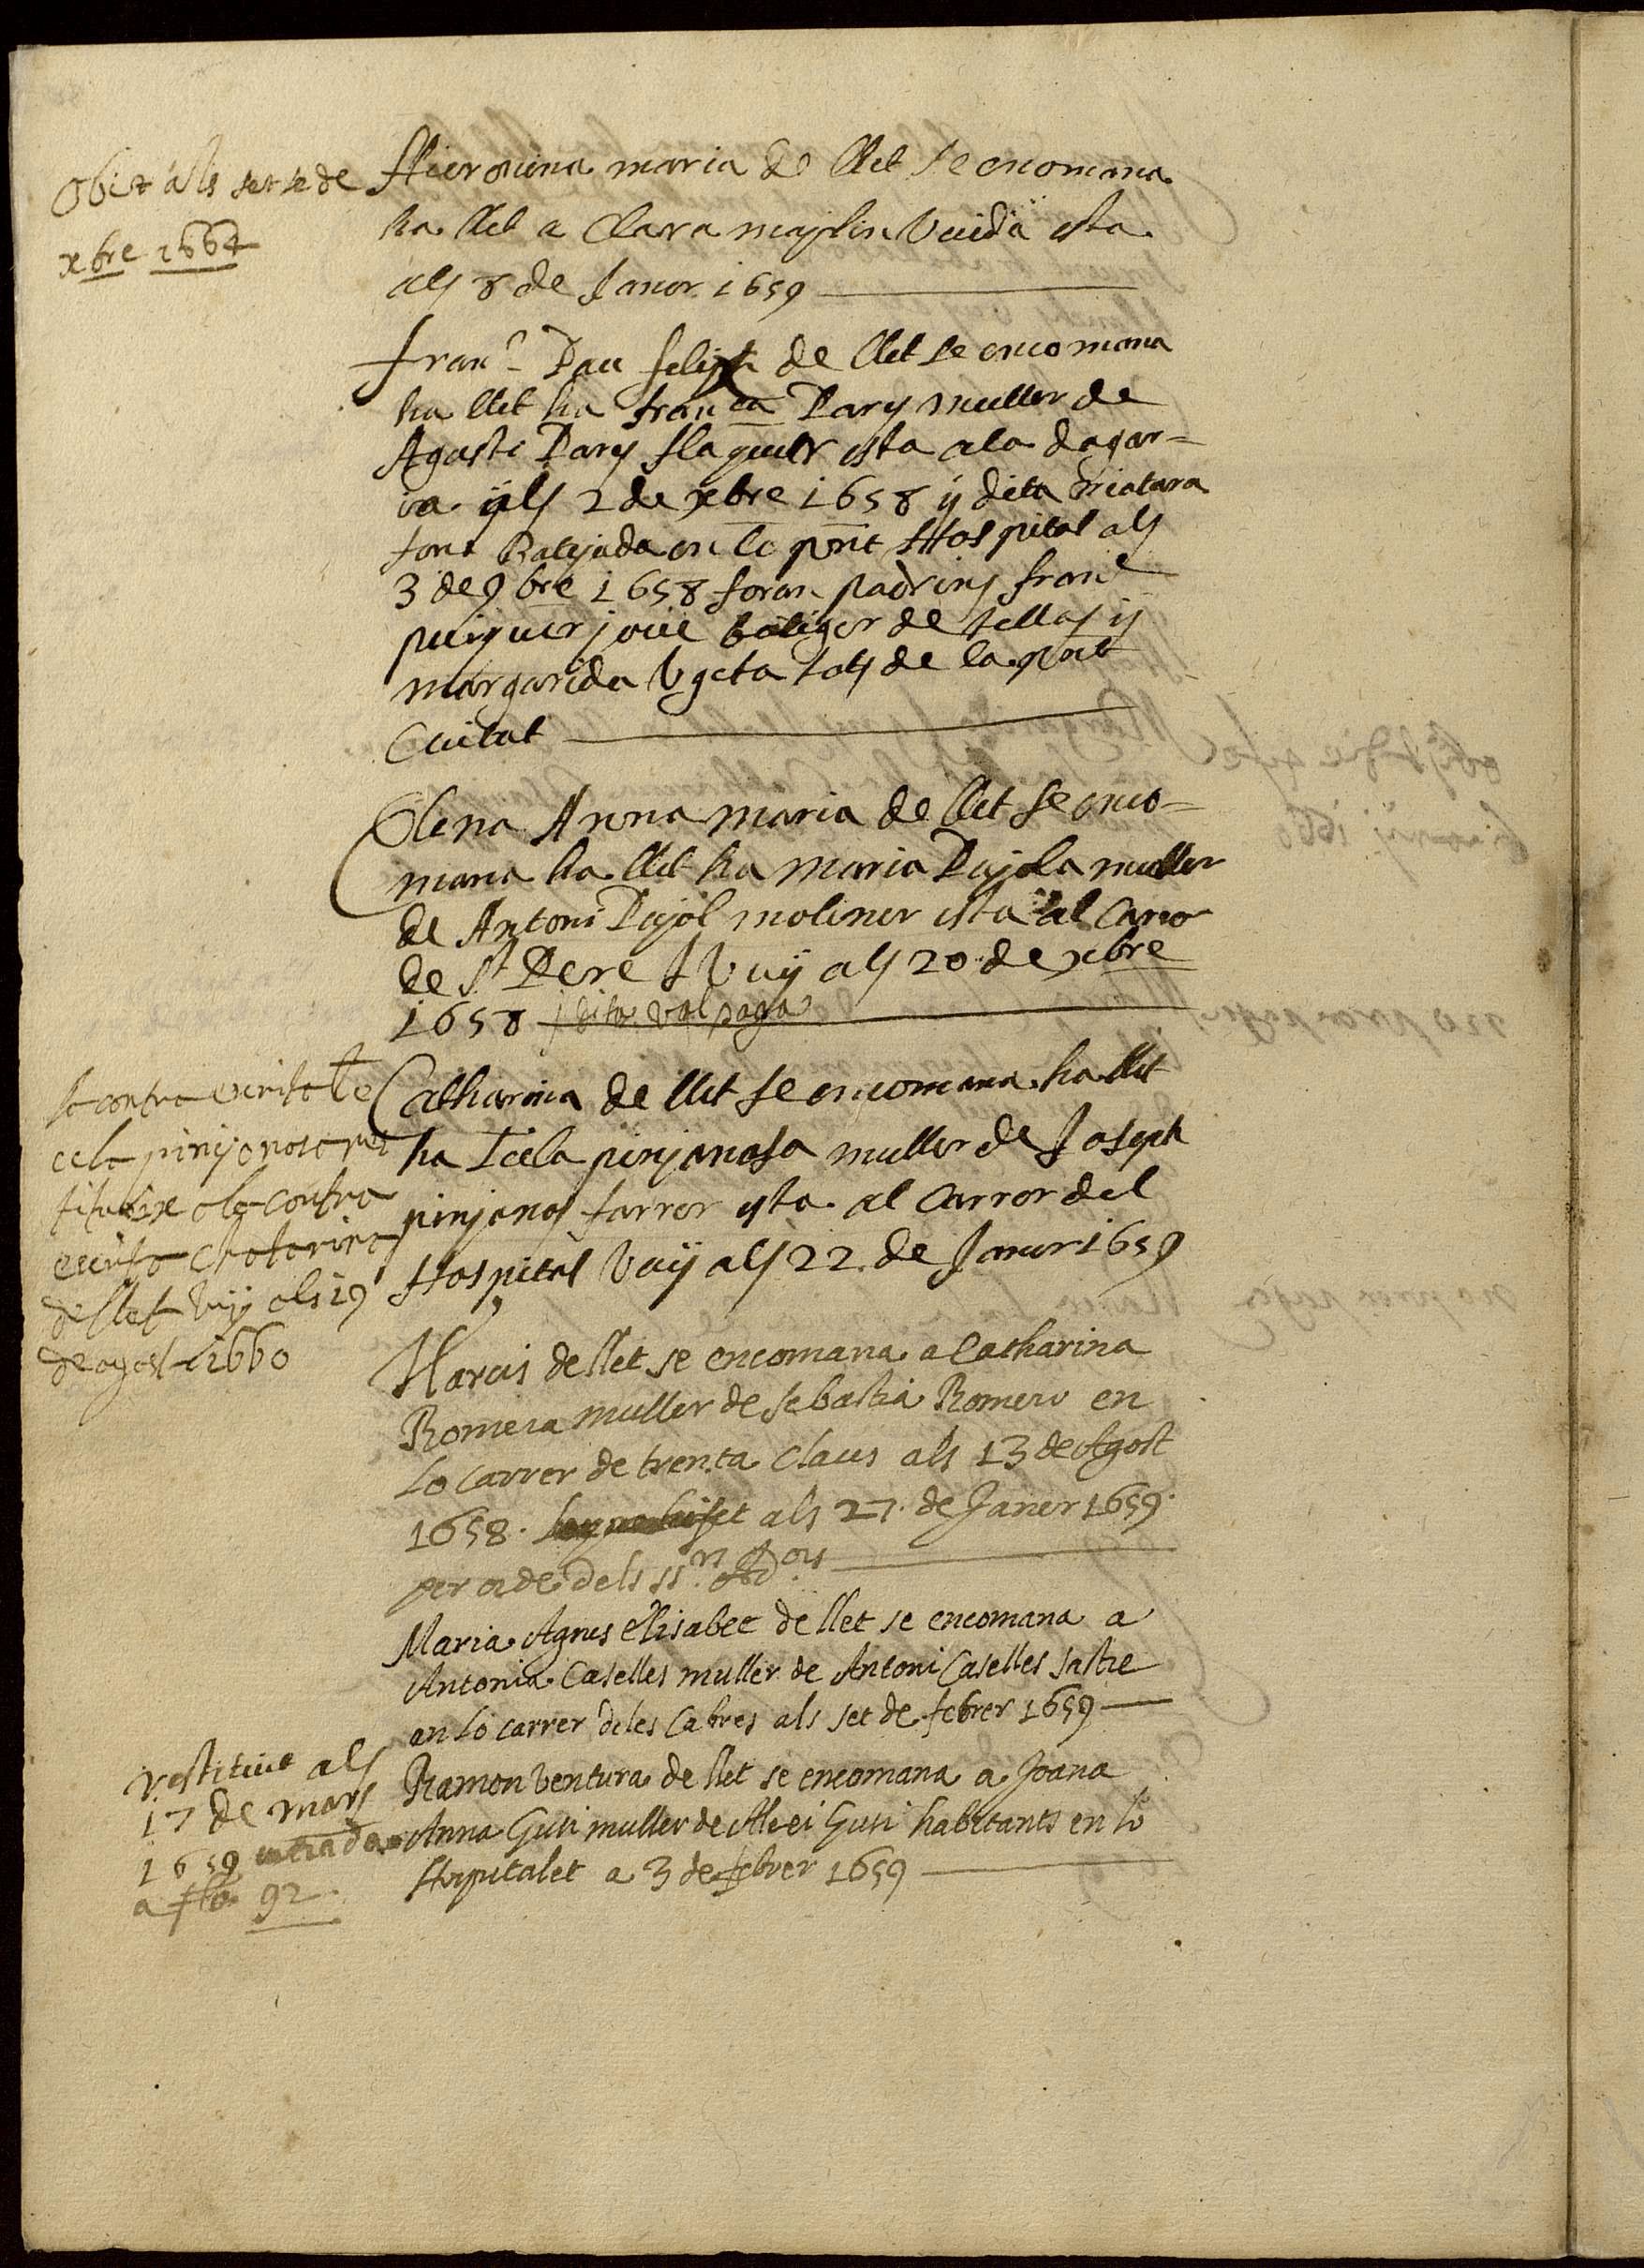 Obiit als setse de
xbre 1664
Hieronima maria de llet se encomana
ha llet a Clara Viuda esta
als 8 de Janer 1659
fran^c Pau felip de llet se encomana
ha llet ha fran^ca Parÿ muller de
Agusti Parÿ flaquer esta a la dagar=
ia ÿ als 2 de xbre 1658 ÿ dita Criatura
fonc Batejada en lo pnt Hospital als
3 de 9bre 1658 foran padrins fran^c
puiguer jove botiger de tellas ÿ
margarida Vgeta tots de la pnt
Ciutat
Elena Anna maria de llet se enco=
mana ha llet ha maria Pujola muller
de Antoni Pujol moliner esta al Carer
de S^t Pere Vuÿ als 20 de xbre
1658 dita vol paga
la contra escrita Te
cela pinjonosa res
tituix a la contra
escrita Chatarina
de llet Vuÿ als 19
de agost 1660
Catharina de llet se encomana ha llet
ha Tecla pinjonosa muller de Joseph
pinjonos farrer esta al Carrer del
Hospital Vuÿ als 22 de Janer 1659
Narcis de llet se encomana a Catharina
Romera muller de Sebastia Romero en
lo carrer de trenta Claus als 13 de Agost
1658. als 27. de Janer 1659.
per orde dels ss^rs Ad^ors
Maria Agnes Elisabet de llet se encomana a
Antonia Caselles muller de Antoni Caselles sastre
en lo carrer de les Cabres als set de febrer 1659
restituit als
17 de mars
1659 entrada
a fto 92.
Ramon Ventura de llet se encomana a Joana
Anna Guri muller de Guri habitants en lo
Hospitalet a 3 de febrer 1659